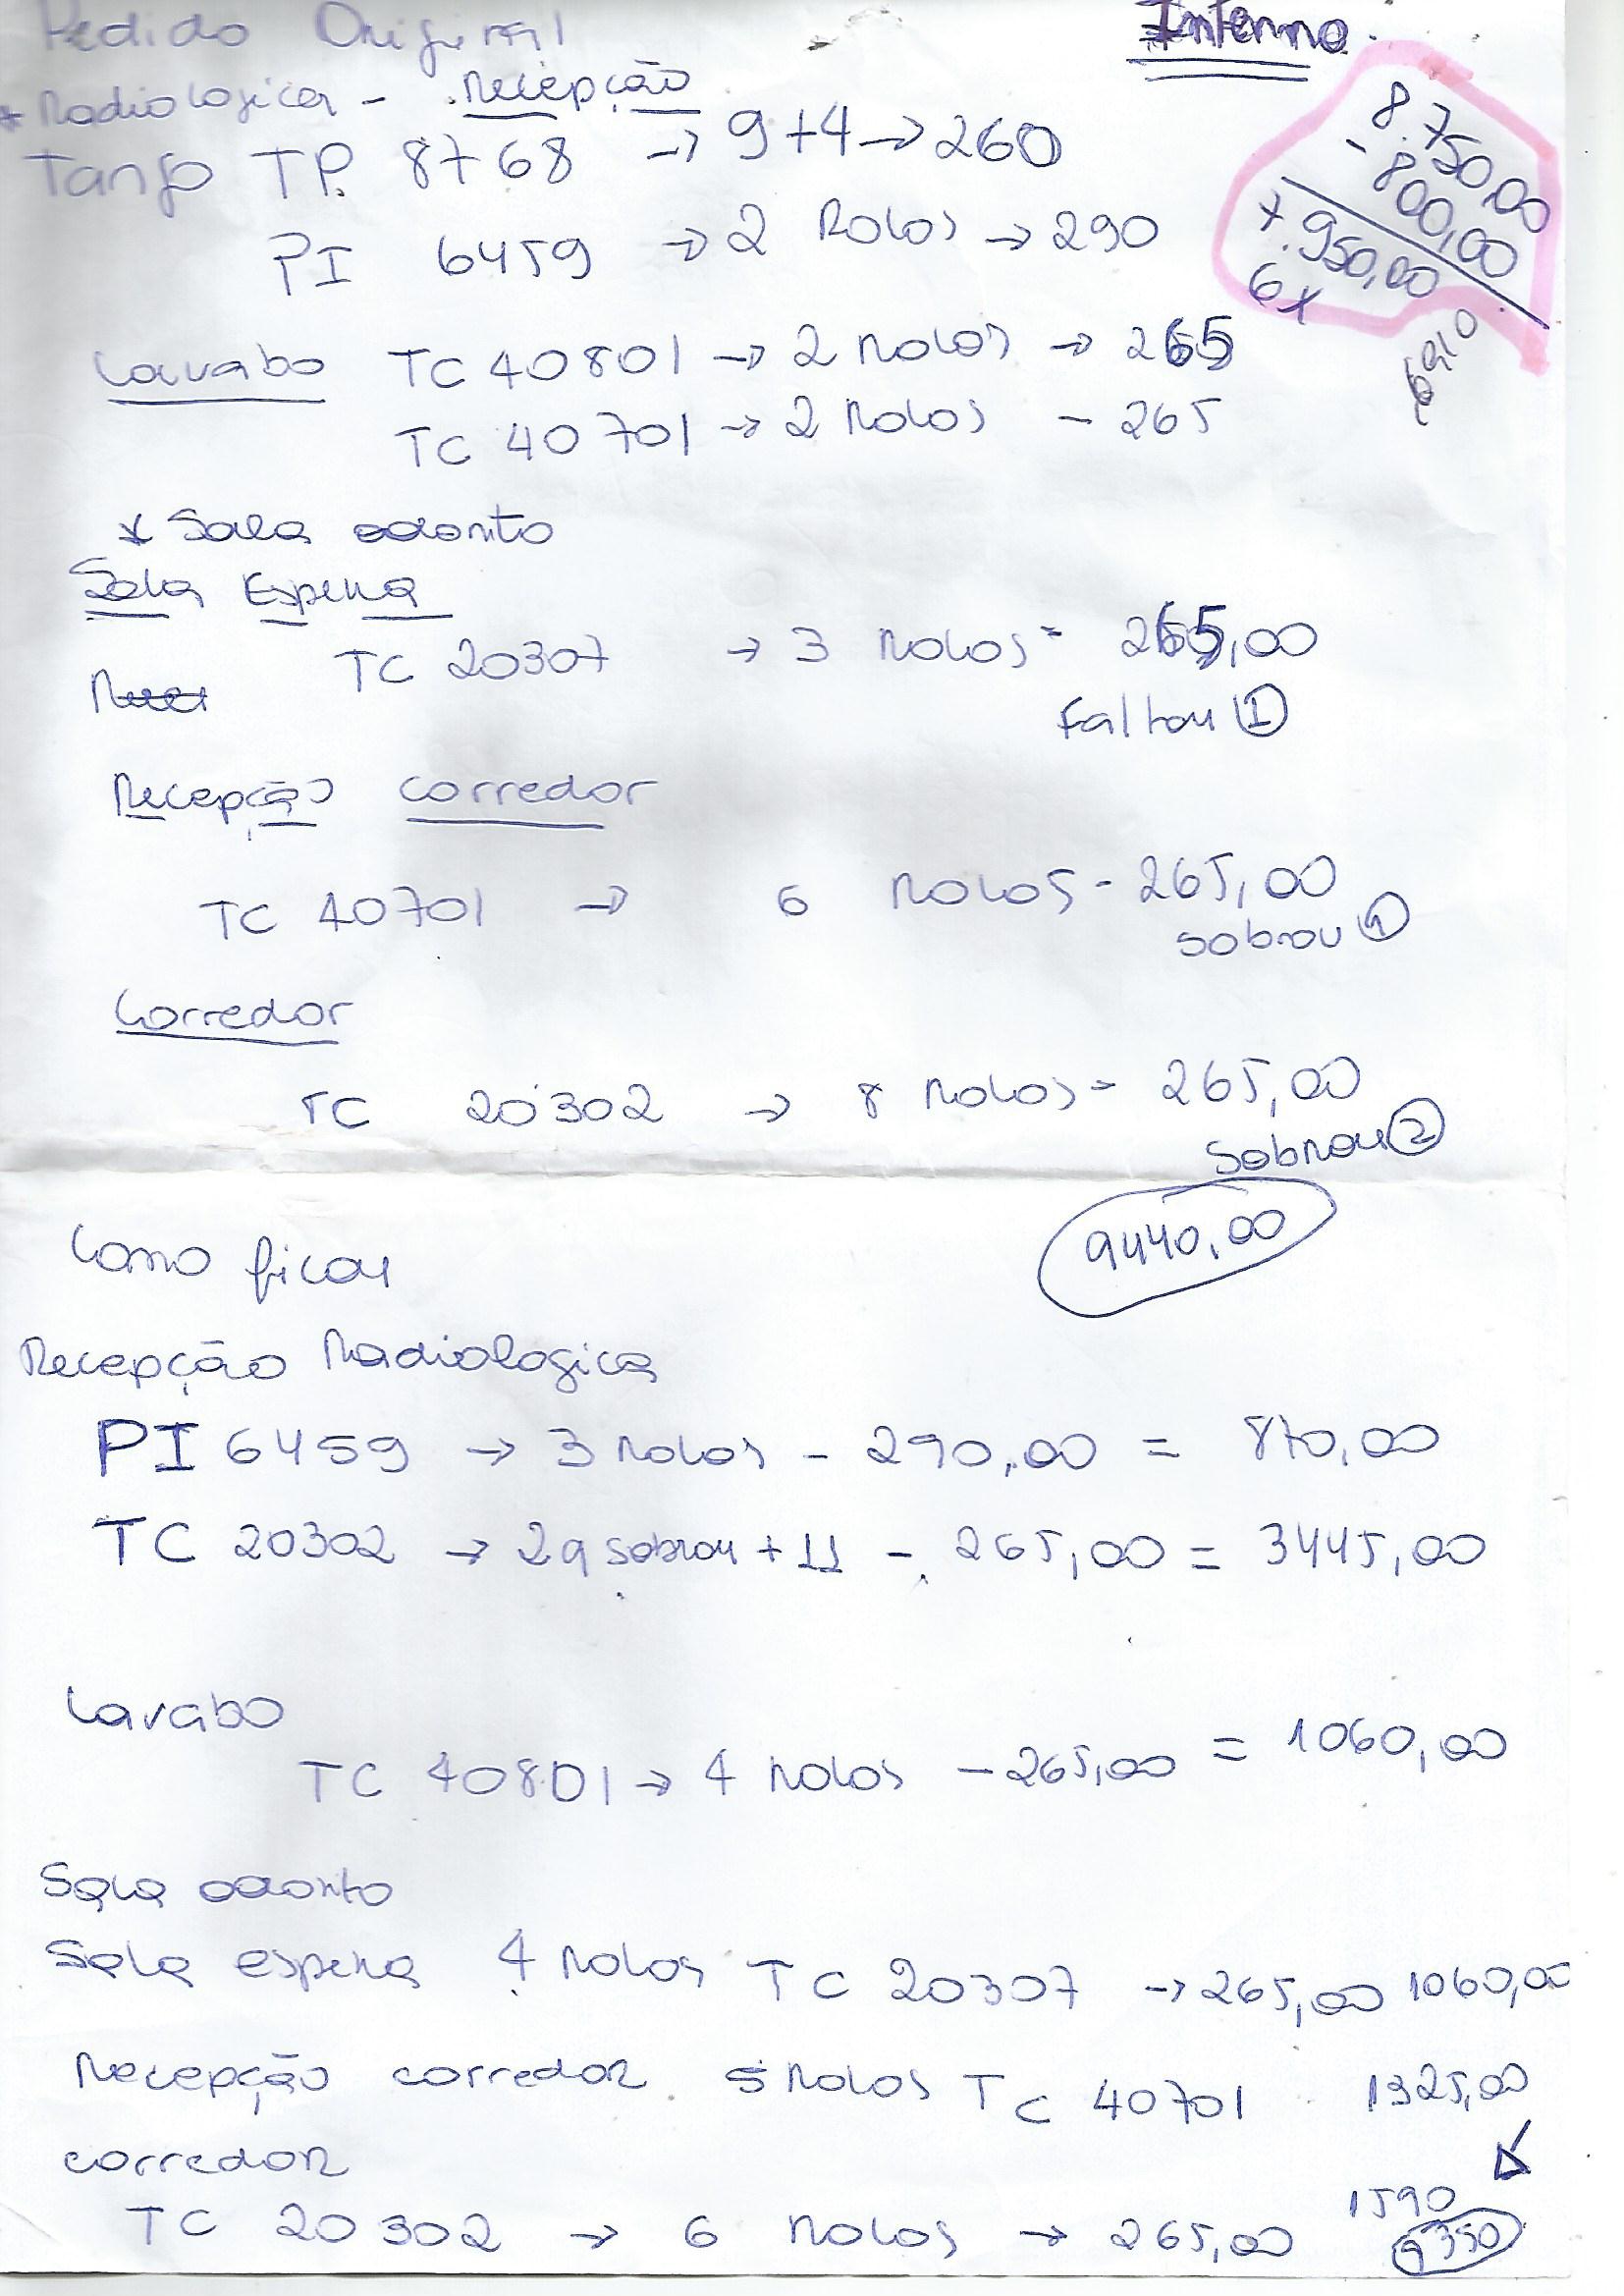 Pedido Original
Interno.
* Radiologica - Recepção
8.750,00
- 800,00
7.950,00
6x
Tango TP. 8768 → 9+4 → 260
PI 6459 → 2 Rolos → 290
Lavabo TC 40801 → 2 Rolos → 265
TC 40701 → 2 Rolos - 265
* Sala odonto
Sala Espera
TC 20307 → 3 Rolos = 265,00
Faltou 1
Recepção corredor
TC 40701 → 6 Rolos - 265,00
Sobrou 1
Corredor
TC 20302 → 8 Rolos - 265,00
Sobrou 2
9440,00
Como ficou
Recepção Radiologica
PI 6459 → 3 Rolos - 290,00 = 870,00
TC 20302 → 2q sobrou + 11 - 265,00 = 3445,00
Lavabo
TC 40801 → 4 Rolos - 265,00 = 1060,00
Sala odonto
Sala espera 4 Rolos TC 20307 → 265,00 1060,00
Recepção corredor 5 Rolos TC 40701 1325,00
corredor
TC 20302 → 6 Rolos → 265,00 1590
9350